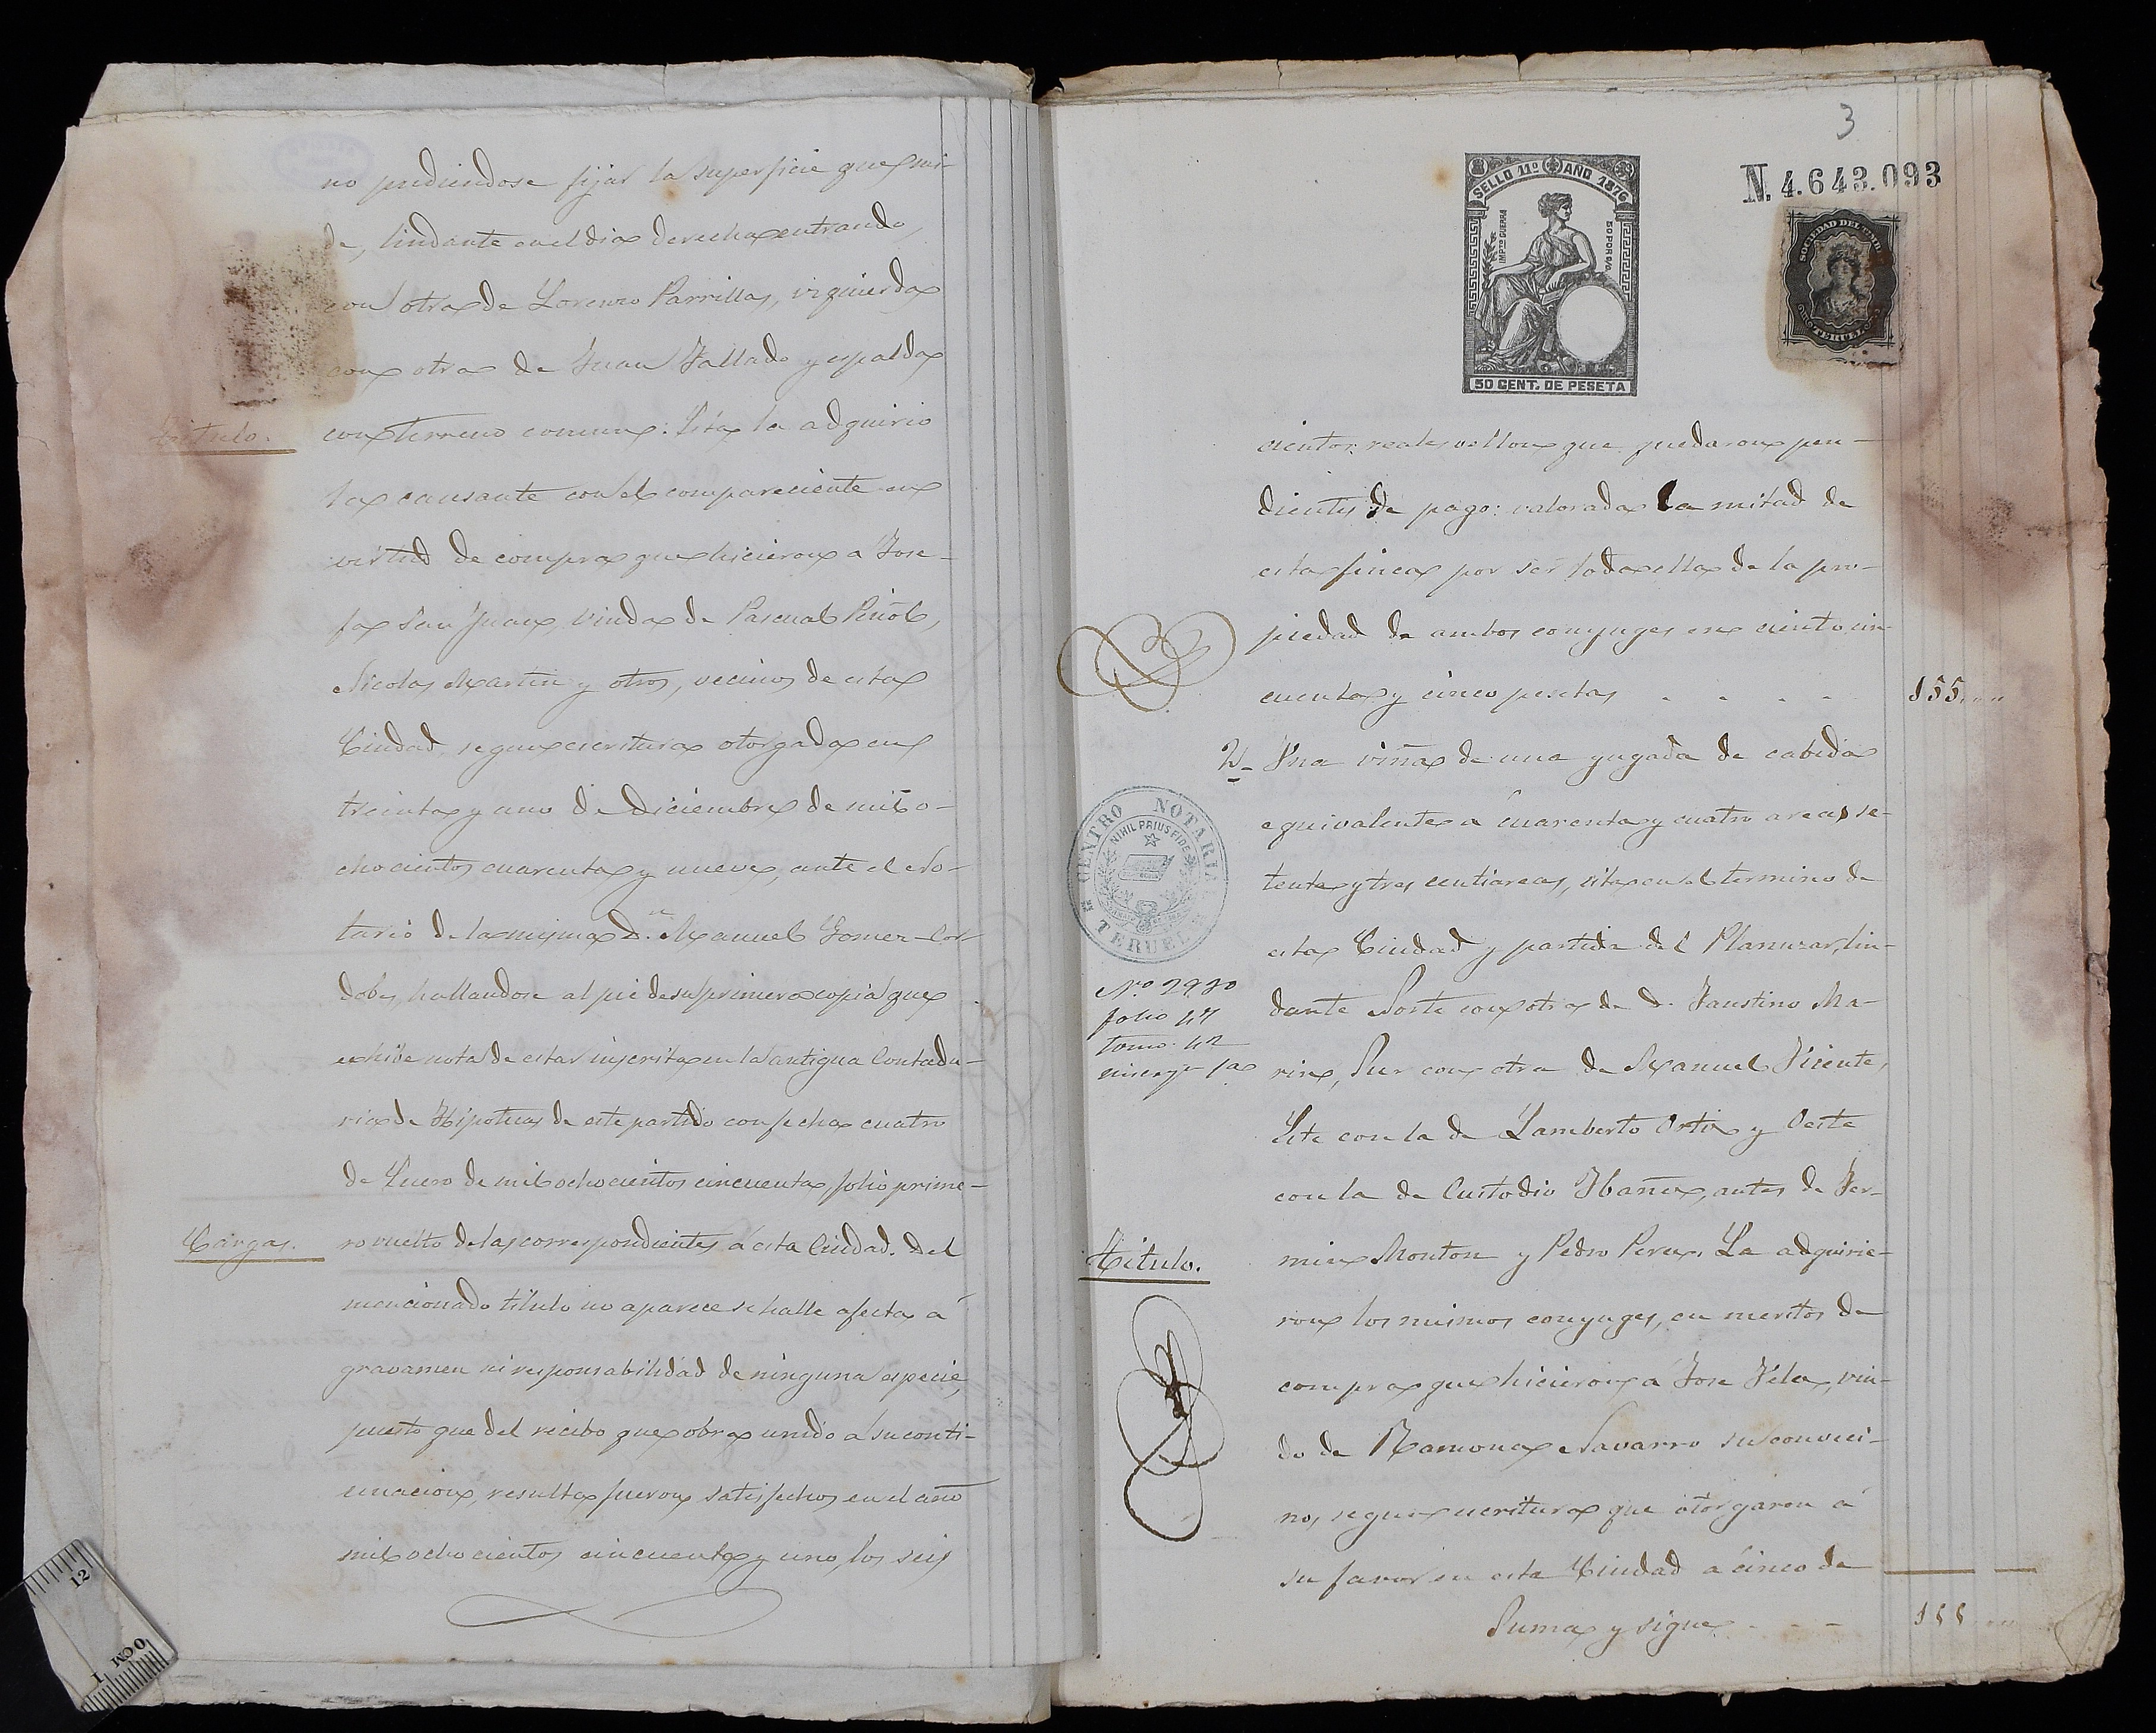 no pudiendose fijar la superficie que mi-
de, lindante en el dia derecha entrando,
con otra de Lorenzo Parrillas, izquierda
con otra de Juan Fallado y espalda
Titulo.
con terreno comun: Esta la adquirio
la causante con el compareciente en
virtud de compra que hicieron a Jose-
fa San Juan, viuda de Pascual Piñol,
Nicolas Martin y otros, vecinos de esta
Ciudad, segun escritura otorgada en
treinta y uno de Diciembre de mil o-
chocientos cuarenta y nueve, ante el No-
tario de la misma D.n Manuel Gomez Cor-
dobes, hallandose al pie de su primera copia que
exhibe nota de estar inscrita en la antigua Contadu-
ria de Hipotecas de este partido con fecha cuatro
de Enero de mil ochocientos cincuenta, folio prime-
Cargas.
ro vuelto de las correspondientes á esta Ciudad. Del
mencionado titulo no aparece se halle afecta á
gravamen ni responsabilidad de ninguna especie,
puesto que del recibo que obra unido á su conti-
nuacion, resulta fueron satisfechos en el año
mil ochocientos cincuenta y uno, los seis
3
SELLO 11º AÑO 1876
IMPTO GUERRA
50 POR %
50 CENT. DE PESETA
N. 4.643.093
SOCIEDAD DEL TIMB
TERUEL
cientos reales vellon que quedaron pen-
dientes de pago: valorada la mitad de
esta finca por ser toda ella de la pro-
piedad de ambos conyuges en ciento cin-
cuenta y cinco pesetas - - - - 155
2.
Una viña de una yugada de cabida
equivalente á cuarenta y cuatro areas se-
tenta y tres centiareas, sita en el termino de
esta Ciudad y partida del Planizar, lin-
CENTRO NOTARIAL
NIHIL PRIUS FIDE
TERUEL
Nº 2920
folio 47
tomo 42
dante Norte con otra de D. Faustino Ma-
rin, Sur con otra de Manuel Vicente,
Este con la de Lamberto Ortiz y Oeste
con la de Custodio Ibañez, antes de Fer-
Titulo.
min Monton y Pedro Perez. La adquirie-
ron los mismos conyuges, en meritos de
compra que hicieron á Jose Vela, viu-
do de Ramona Navarro su conveci-
no, segun escritura que otorgaron á
su favor en esta Ciudad a cinco de
Suma y sigue - - - 155